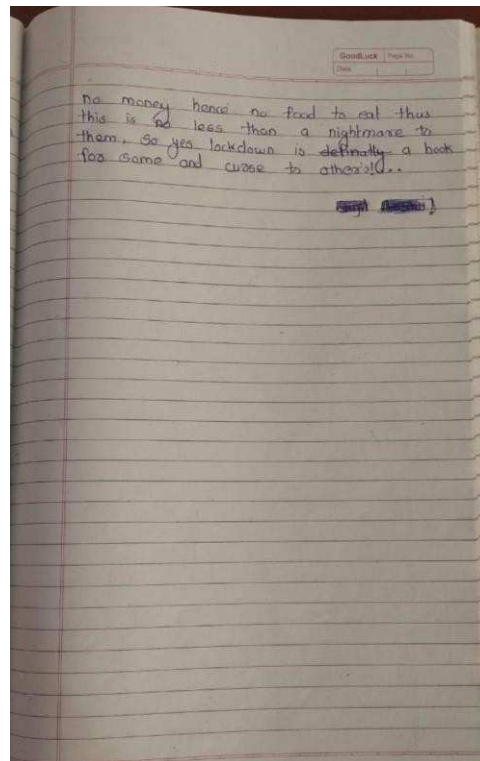 GoodLuck Page No.
Date
no money hence no food to eat thus
this is no less than a nightmare to
them. So yes lockdown is definatly a book
for some and curse to other's!!...